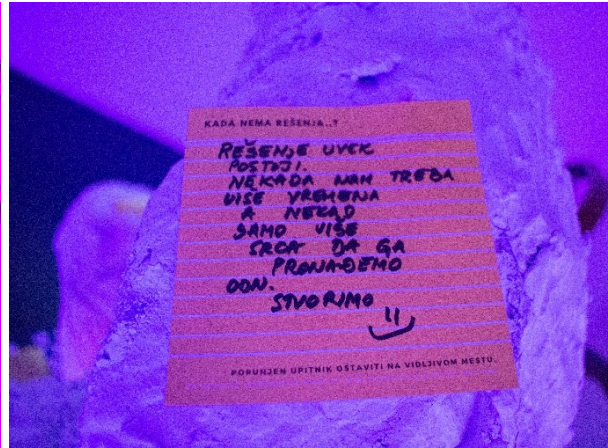 KADA NEMA REŠENJA..?
REŠENJE UVEK
POSTOJI.
NEKADA NAM TREBA
VIŠE VREMENA
A NEKAD
SAMO VIŠE
SRCA DA GA
PRONAĐEMO
ODN.
STVORIMO
POPUNJEN UPITNIK OSTAVITI NA VIDLJIVOM MESTU.